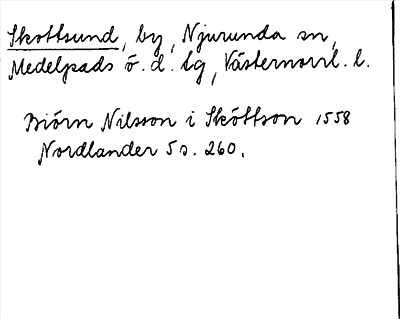 Skottsund, by, Njurunda sn,
Medelpads ö. d. tg, Västernorrl. l.
Biörn Nilsson i Sköttson 1558
Nordlander 5 s. 260.